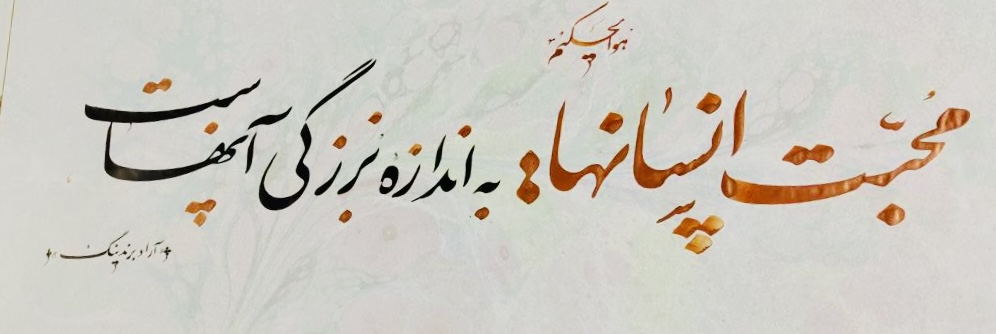 هوالحکیم
محبت انسانها به اندازه بزرگی آنهاست
آراد برندینگ